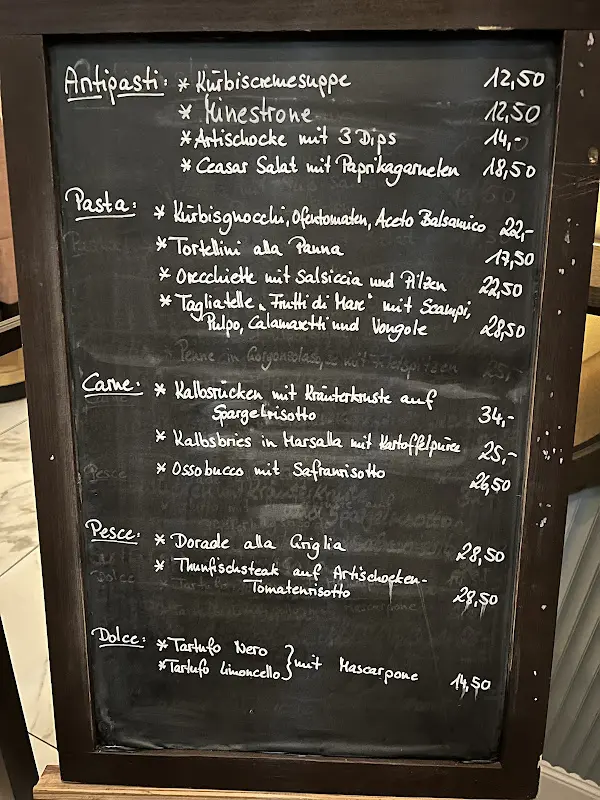 Antipasti: * Kürbiscremesuppe 12,50
* Minestrone 12,50
* Artischocke mit 3 Dips 14,-
* Ceasar Salat mit Paprikagarnelen 18,50
Pasta: * Kürbisgnocchi, Ofentomaten, Aceto Balsamico 22,-
* Tortellini alla Panna 17,50
* Orecchiette mit Salsiccia und Pilzen 22,50
* Tagliatelle „Frutti di Mare“ mit Scampi,
Pulpo, Calamaretti und Vongole 28,50
Penne in Gorgonzolaso 25,-
Carne: * Kalbsrücken mit Kräuterkruste auf
Spargelrisotto 34,-
* Kalbsbries in Marsalla mit Kartoffelpüree 25,-
* Ossobucco mit Safranrisotto 26,50
Pesce: * Dorade alla Griglia 28,50
* Thunfischsteak auf Artischocken-
Tomatenrisotto 28,50
Dolce: * Tartufo Nero
* Tartufo Limoncello } mit Mascarpone 14,50